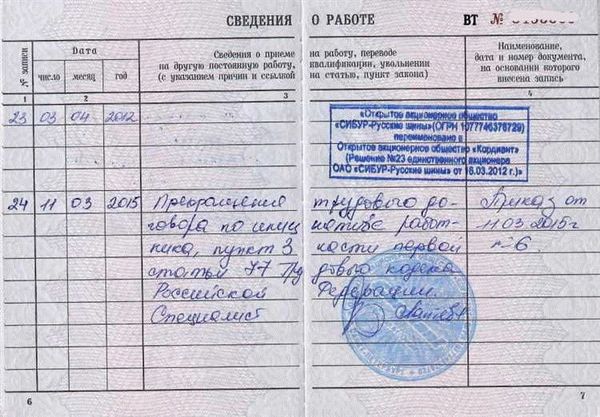 СВЕДЕНИЯ О РАБОТЕ
ВТ №
№ записи
Дата
число месяц год
Сведения о приеме на работу, переводе
на другую постоянную работу, квалификации, увольнении
(с указанием причин и ссылкой на статью, пункт закона)
Наименование,
дата и номер документа,
на основании которого
внесена запись
1 2 3 4
23 03 04 2012
«Открытое акционерное общество
«СИБУР-Русские шины» (ОГРН 1077746378729)
переименовано в
Открытое акционерное общество «Кордиант»
(Решение №23 единственного акционера
ОАО «СИБУР-Русские шины» от 16.03.2012 г.)»
24 11 03 2015 Прекращение трудового до- Приказ от
говора по иници ативе работ- 11 03 2015 г
ника, пункт 3 части первой №6.
статьи 77 Тру дового кодекса
Российской Федерации.
Специалист
6
7